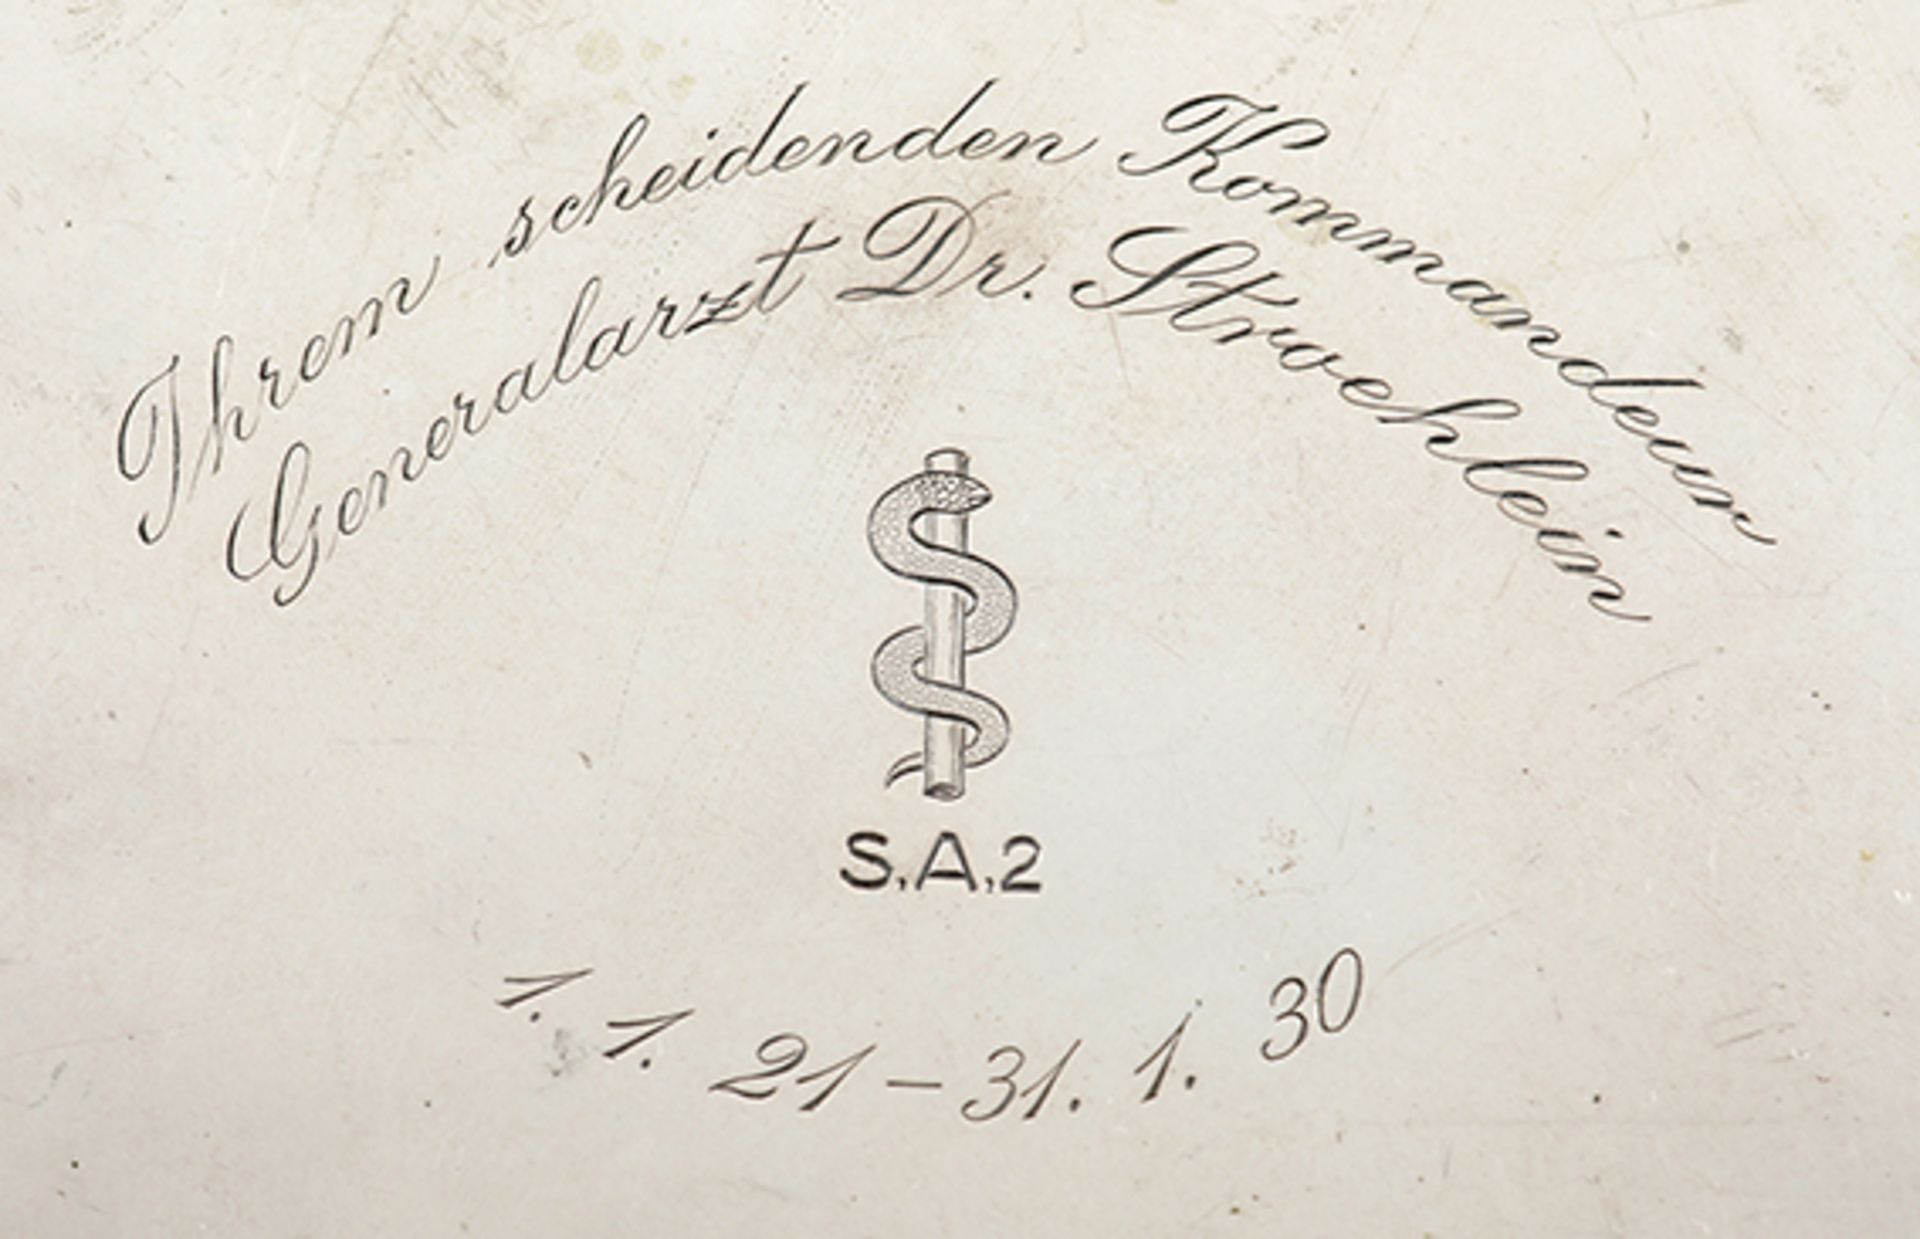 Ihrem scheidenden Kommandeur
Generalarzt Dr. Stroehlein
S.A.2
1. 1. 21 – 31. 1. 30